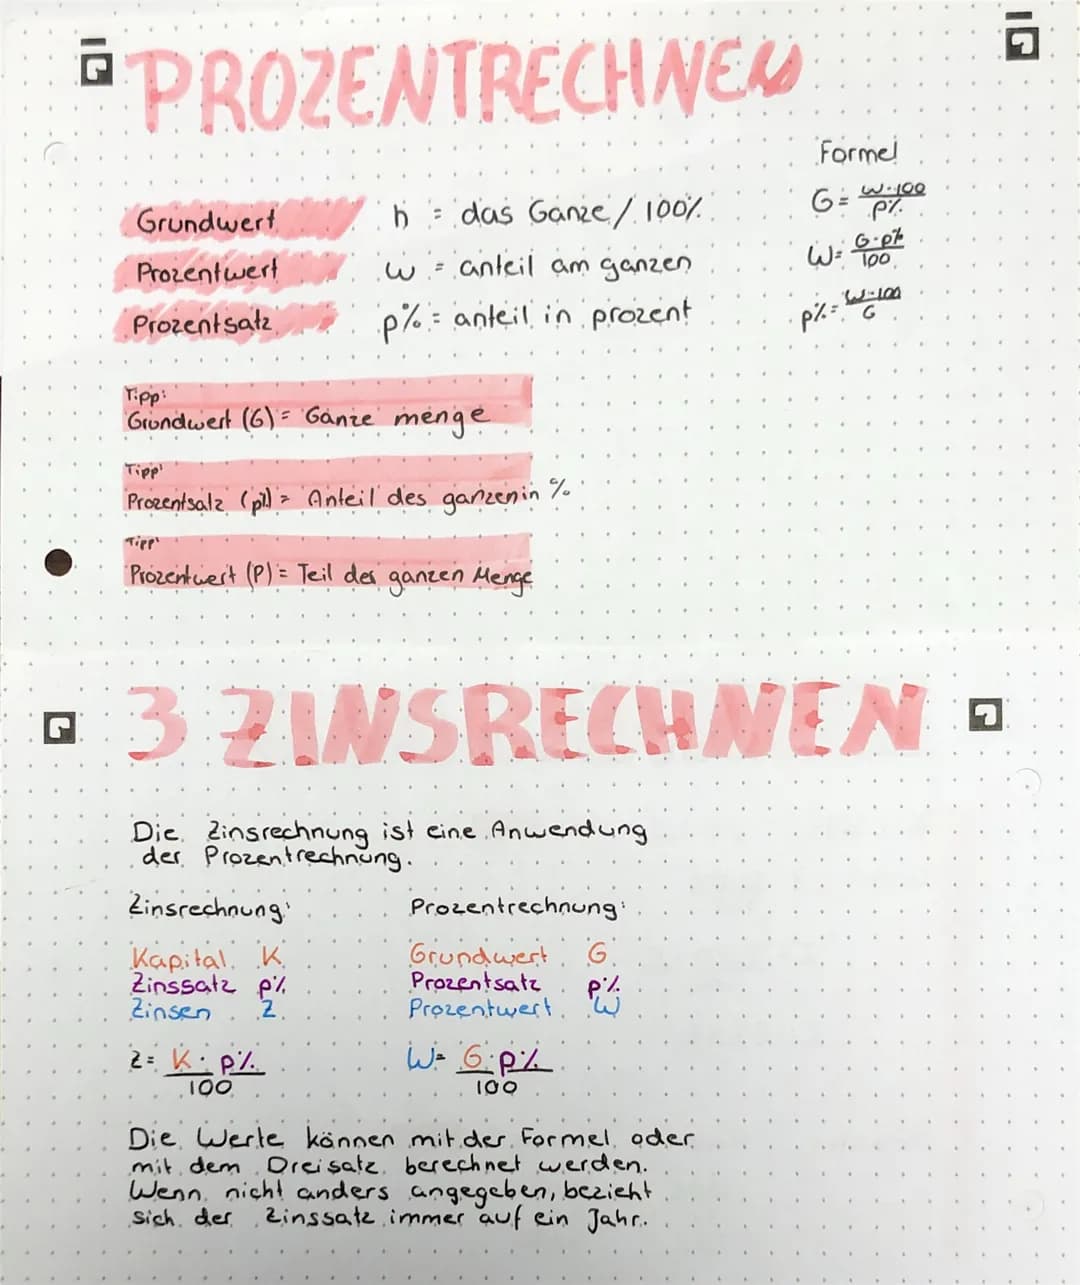 PROZENTRECHNEN
Formel
Grundwert h = das Ganze / 100% G = W·100 / P%
Prozentwert w = anteil am ganzen W = G·p% / 100
Prozentsatz p% = anteil in prozent p% = W·100 / G
Tipp:
Grundwert (G) = Ganze menge
Tipp'
Prozentsatz (p%) = Anteil des ganzen in %
Tipp'
Prozentwert (P) = Teil der ganzen Menge
3 ZINSRECHNEN
Die Zinsrechnung ist eine Anwendung
der Prozentrechnung.
Zinsrechnung: Prozentrechnung:
Kapital K Grundwert G
Zinssatz p% Prozentsatz p%
Zinsen Z Prozentwert W
Z = K · p% / 100 W = G · p% / 100
Die Werte können mit der Formel oder
mit dem Dreisatz berechnet werden.
Wenn nicht anders angegeben, bezieht
sich der Zinssatz immer auf ein Jahr.